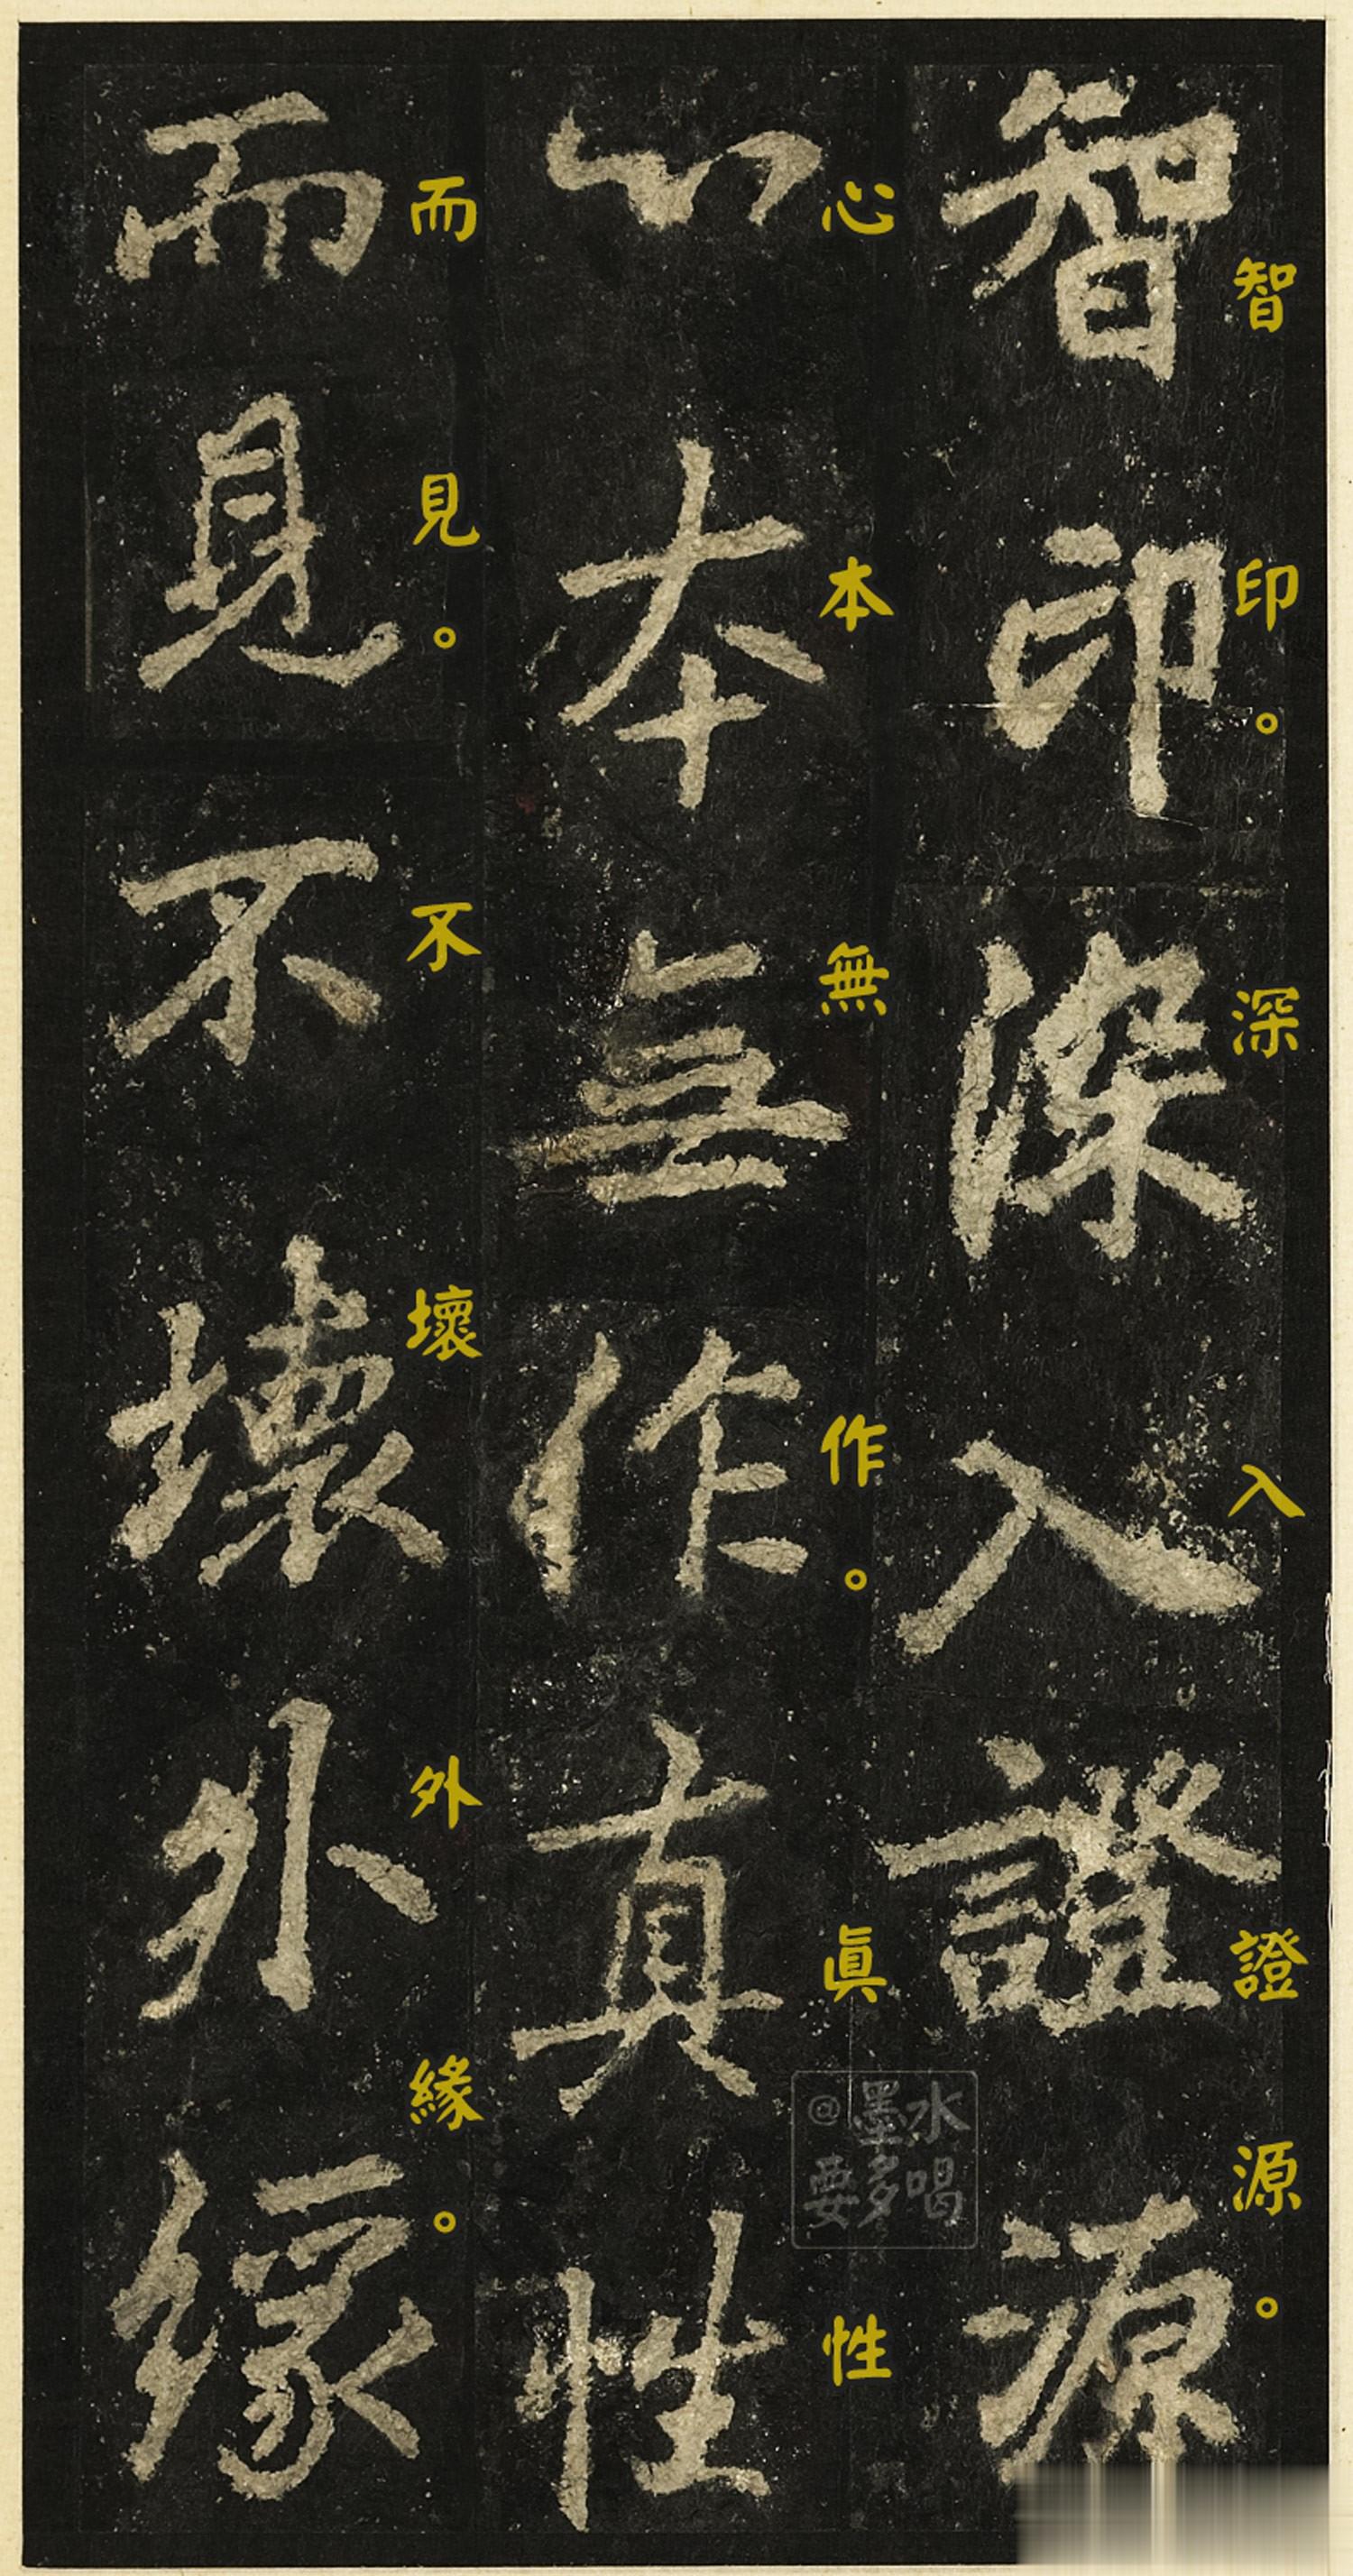 智印。深入證源。
心本無作。真性
而見。不壞外緣。
智印。深入證源。
心本無作。眞性
而見。不壞外緣。
@墨水
要多喝